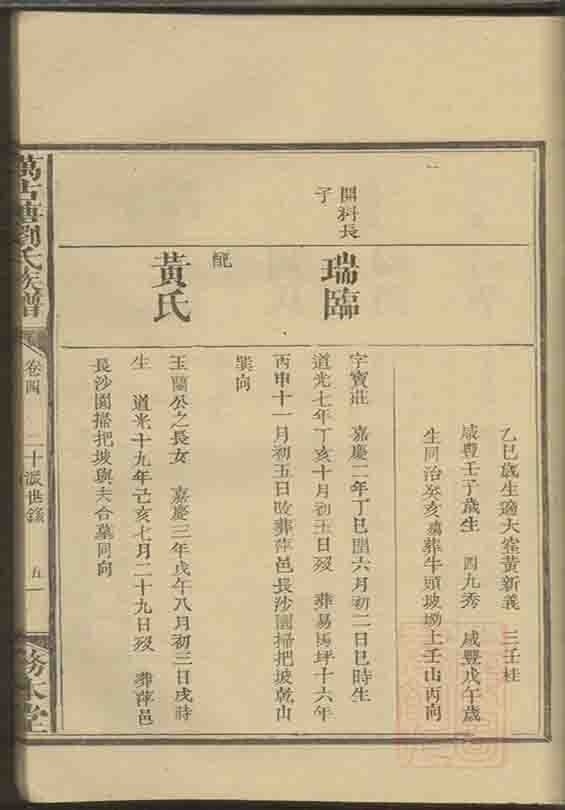 乙巳歲生適大窰黃新義 三壬桂
咸豐壬子歲生 四九秀 咸豐戊午歲
生同治癸亥塟牛頭坡坳上壬山丙向
開科長
子
瑞臨
字寶莊 嘉慶二年丁巳閏六月初二日巳時生
道光七年丁亥十月初五日歿 葬易家坪十六年
丙申十一月初五日改葬萍邑長沙園掃把坡乾山
巽向
配
黃氏
玉蘭公之長女 嘉慶三年戊午八月初三日戌時
生 道光十九年己亥七月二十九日歿 葬萍邑
長沙園掃把坡與夫合墓同向
萬古塘劉氏族譜
卷四
二十派世錄
五
務本堂